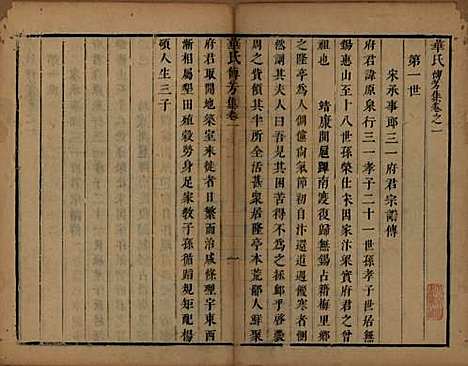 華氏傳芳集卷之一
第一世
宋承事郎三一府君宗譜傳
府君諱原泉行三一孝子二十一世孫孝子世居無
錫惠山至十八世孫榮仕宋因家汴杲實府君之曾
祖也 靖康閒扈蹕南渡復歸無錫占籍梅里鄉
之隆亭爲人倜儻有氣節初自汴還道遇饑寒者惻
然欲濟之其夫人曰吾見其困苦得不爲之拯卹乎啓囊
周之貲傾其半所全活甚衆居隆亭本荒鄙人鮮聚
府君聚開地築室來依者日繁而治咸條理宇東西
相屬墾田殖穀勞身足家敎子孫循蹈規矩配楊
碩人生三子
華氏傳芳集 卷一
一